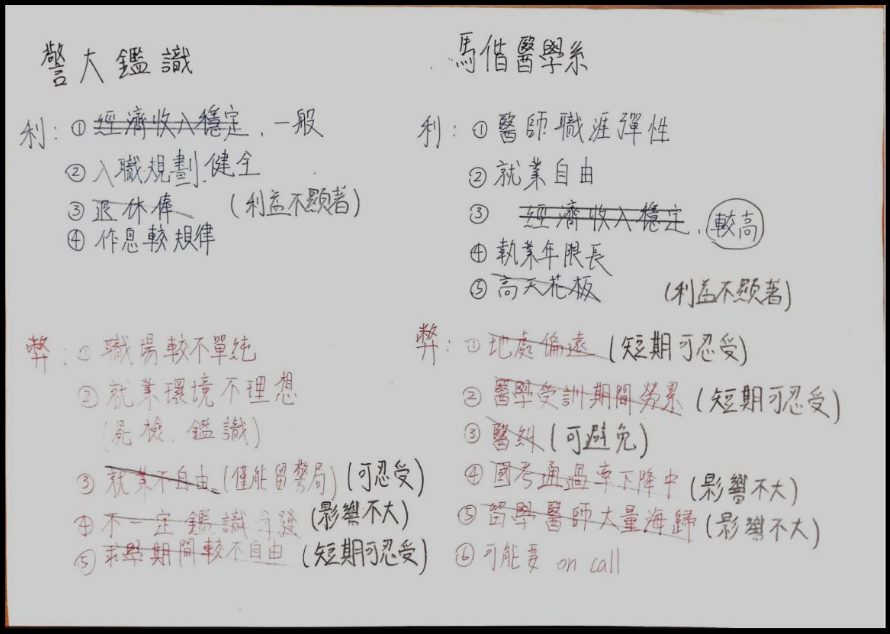 警大鑑識
利：① 經濟收入穩定、一般
② 入職規劃健全
③ 退休俸 (利益不顯著)
④ 作息較規律
弊：① 職場較不單純
② 就業環境不理想
(屍檢、鑑識)
③ 就業不自由 (僅能留警局) (可忍受)
④ 不一定鑑識分發 (影響不大)
⑤ 求學期間較不自由 (短期可忍受)
馬偕醫學系
利：① 醫師職涯彈性
② 就業自由
③ 經濟收入穩定、較高
④ 執業年限長
⑤ 高天花板 (利益不顯著)
弊：① 地處偏遠 (短期可忍受)
② 醫學受訓期間勞累 (短期可忍受)
③ 醫糾 (可避免)
④ 國考通過率下降中 (影響不大)
⑤ 留學醫師大量海歸 (影響不大)
⑥ 可能要 on call